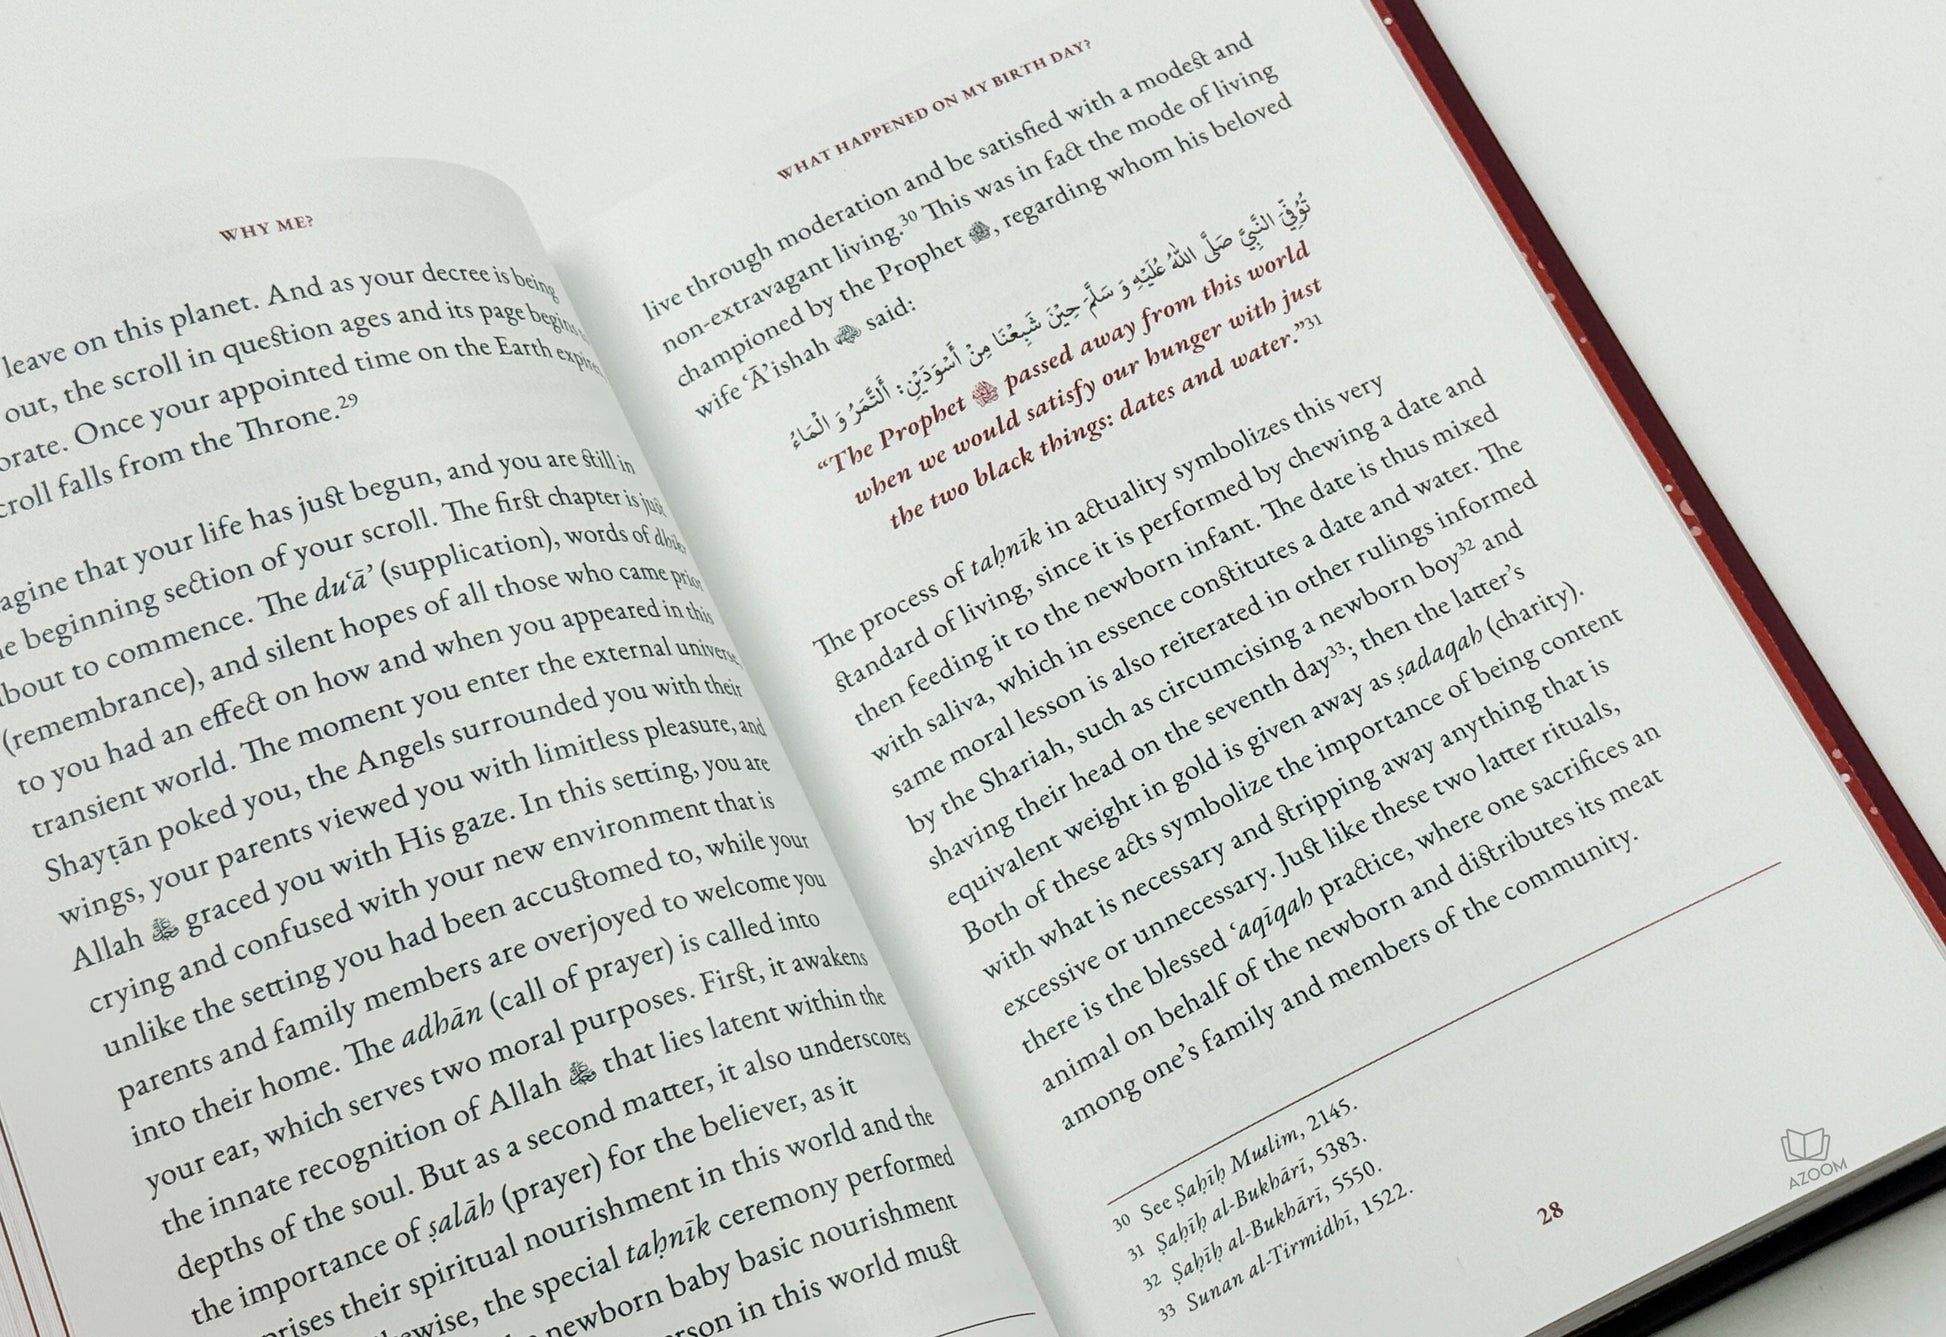 WHY ME?
leave on this planet. And as your decree is being
out, the scroll in question ages and its page begins
orate. Once your appointed time on the Earth expires
croll falls from the Throne.29
agine that your life has just begun, and you are still in
e beginning section of your scroll. The first chapter is just
bout to commence. The du‘ā’ (supplication), words of dhikr
(remembrance), and silent hopes of all those who came prior
to you had an effect on how and when you appeared in this
transient world. The moment you enter the external universe,
Shayṭān poked you, the Angels surrounded you with their
wings, your parents viewed you with limitless pleasure, and
Allah ﷻ graced you with His gaze. In this setting, you are
crying and confused with your new environment that is
unlike the setting you had been accustomed to, while your
parents and family members are overjoyed to welcome you
into their home. The adhān (call of prayer) is called into
your ear, which serves two moral purposes. First, it awakens
the innate recognition of Allah ﷻ that lies latent within the
depths of the soul. But as a second matter, it also underscores
the importance of ṣalāh (prayer) for the believer, as it
prises their spiritual nourishment in this world and the
ewise, the special taḥnīk ceremony performed
newborn baby basic nourishment
erson in this world must
WHAT HAPPENED ON MY BIRTH DAY?
live through moderation and be satisfied with a modest and
non-extravagant living.30 This was in fact the mode of living
championed by the Prophet ﷺ, regarding whom his beloved
wife ‘Ā’ishah said:
تُوُفِّيَ النَّبِيُّ صَلَّى اللهُ عَلَيْهِ وَ سَلَّمَ حِيْنَ شَبِعْنَا مِنْ أَسْوَدَيْنِ: أَلتَّمَرُ وَ الْمَاءُ
“The Prophet ﷺ passed away from this world
when we would satisfy our hunger with just
the two black things: dates and water.”31
The process of taḥnīk in actuality symbolizes this very
standard of living, since it is performed by chewing a date and
then feeding it to the newborn infant. The date is thus mixed
with saliva, which in essence constitutes a date and water. The
same moral lesson is also reiterated in other rulings informed
by the Shariah, such as circumcising a newborn boy32 and
shaving their head on the seventh day33; then the latter’s
equivalent weight in gold is given away as ṣadaqah (charity).
Both of these acts symbolize the importance of being content
with what is necessary and stripping away anything that is
excessive or unnecessary. Just like these two latter rituals,
there is the blessed ‘aqīqah practice, where one sacrifices an
animal on behalf of the newborn and distributes its meat
among one’s family and members of the community.
30 See Ṣaḥīḥ Muslim, 2145.
31 Ṣaḥīḥ al-Bukhārī, 5383.
32 Ṣaḥīḥ al-Bukhārī, 5550.
33 Sunan al-Tirmidhī, 1522.
28
AZOOM